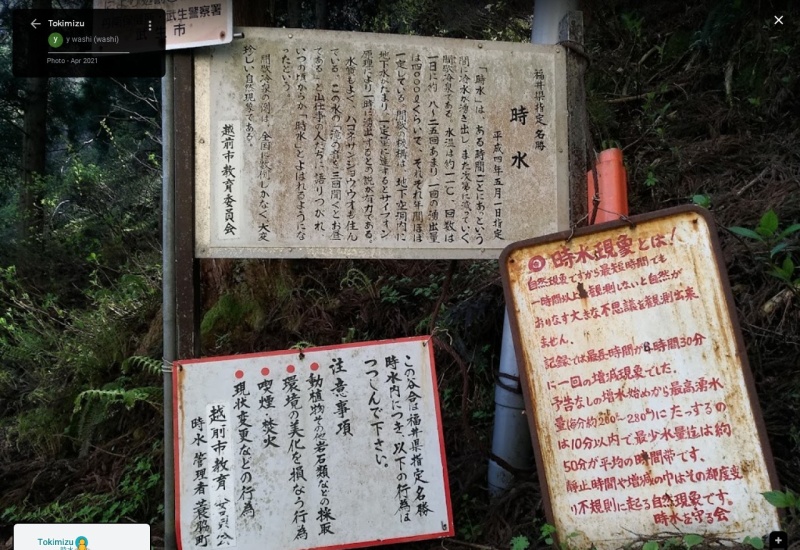 Tokimizu
y washi (washi)
Photo - Apr 2021
武生警察署
市
福井県指定名勝
時水
平成四年五月一日指定
「時水」は、ある時間ごとにあっという
間に冷水が湧き出し、また次第に減っていく
間歇冷泉である。水温は約一一℃、回数は
一日に約八〜二五回あまり、一回の湧出量
は四〇〇〇ℓぐらいで、それぞれ年間ほぼ
一定している。間歇の機構は、地下空洞内に
地下水がたまり、一定量に達するとサイフォン
原理により一時に湧出するとの説が有力である。
水質もよく、ハコネサンショウウオも住ん
でいる。この水の湧の音を三回聞くとお昼
であると山仕事の人たちに語りつがれ、
いつの頃からか「時水」とよばれる様にな
ったという。
間歇冷泉の例は、全国に数例しかなく大変
珍しい自然現象である。
越前市教育委員会
時水現象とは!
自然現象ですから最短時間でも
一時間以上観測しないと自然が
おりなす大きな不思議を観測出来
ません。
記録では最長時間が8時間30分
に一回の増減現象でした。
予告なしの増水始めから最高湧水
量(毎分約260ℓ〜280ℓ)にたっするの
は10分以内で最少水量迄は約
50分が平均の時間帯です。
静止時間や増減の巾はその都度変
り不規則に起る自然現象です。
時水を守る会
この谷合は福井県指定名勝
時水内につき以下の行為は
つつしんで下さい。
注意事項
動植物その他岩石類などの採取
環境の美化を損なう行為
喫煙・焚火
現状変更などの行為
越前市教育委員会
時水管理者 蓑脇町
Tokimizu
時水